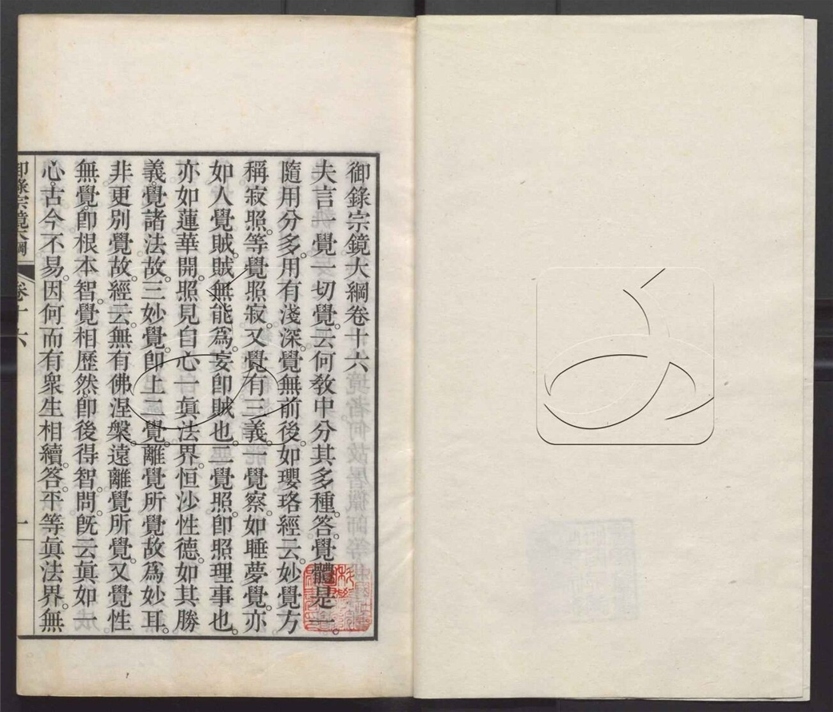 御錄宗鏡大綱卷十六
夫言一覺一切覺。云何教中分其多種。答。覺體是一。
隨用分多。用有淺深。覺無前後。如瓔珞經云。妙覺方
稱寂照。等覺照寂。又覺有三義。一覺察。如睡夢覺。亦
如人覺賊。賊無能爲。妄卽賊也。二覺照。卽照理事也。
亦如蓮華開。照見自心一眞法界。恒沙性德。如其勝
義。覺諸法故。三妙覺。卽上二覺。離覺所覺故爲妙耳。
非更別覺故。經云。無有佛涅槃。遠離覺所覺。又覺性
無覺。卽根本智。覺相歷然。卽後得智。問。旣云眞如一
心。古今不易。因何而有衆生相續。答。平等眞法界。無
御錄宗鏡大綱 卷十六 一